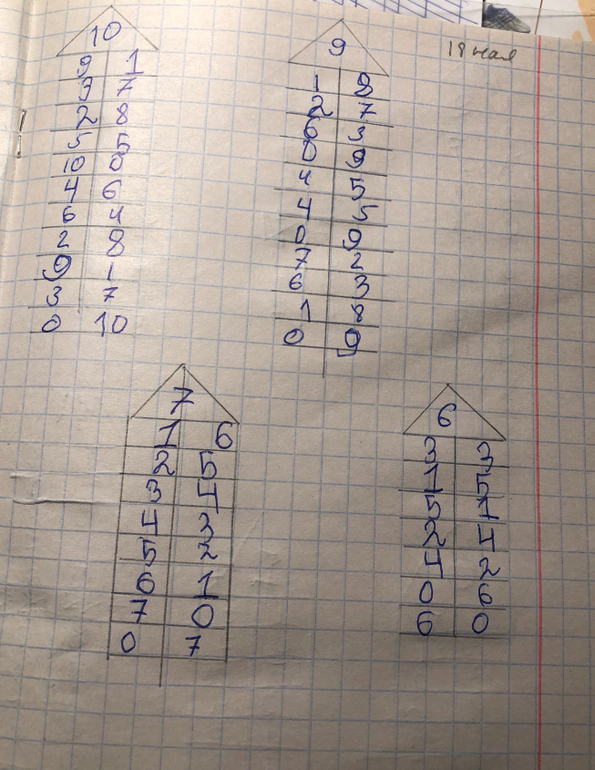 18 мая
10
9 1
3 7
2 8
5 5
10 0
4 6
6 4
2 8
9 1
3 7
0 10
9
1 8
2 7
6 3
0 9
4 5
4 5
0 9
7 2
6 3
1 8
0 9
7
1 6
2 5
3 4
4 3
5 2
6 1
7 0
0 7
6
3 3
1 5
5 1
2 4
4 2
0 6
6 0